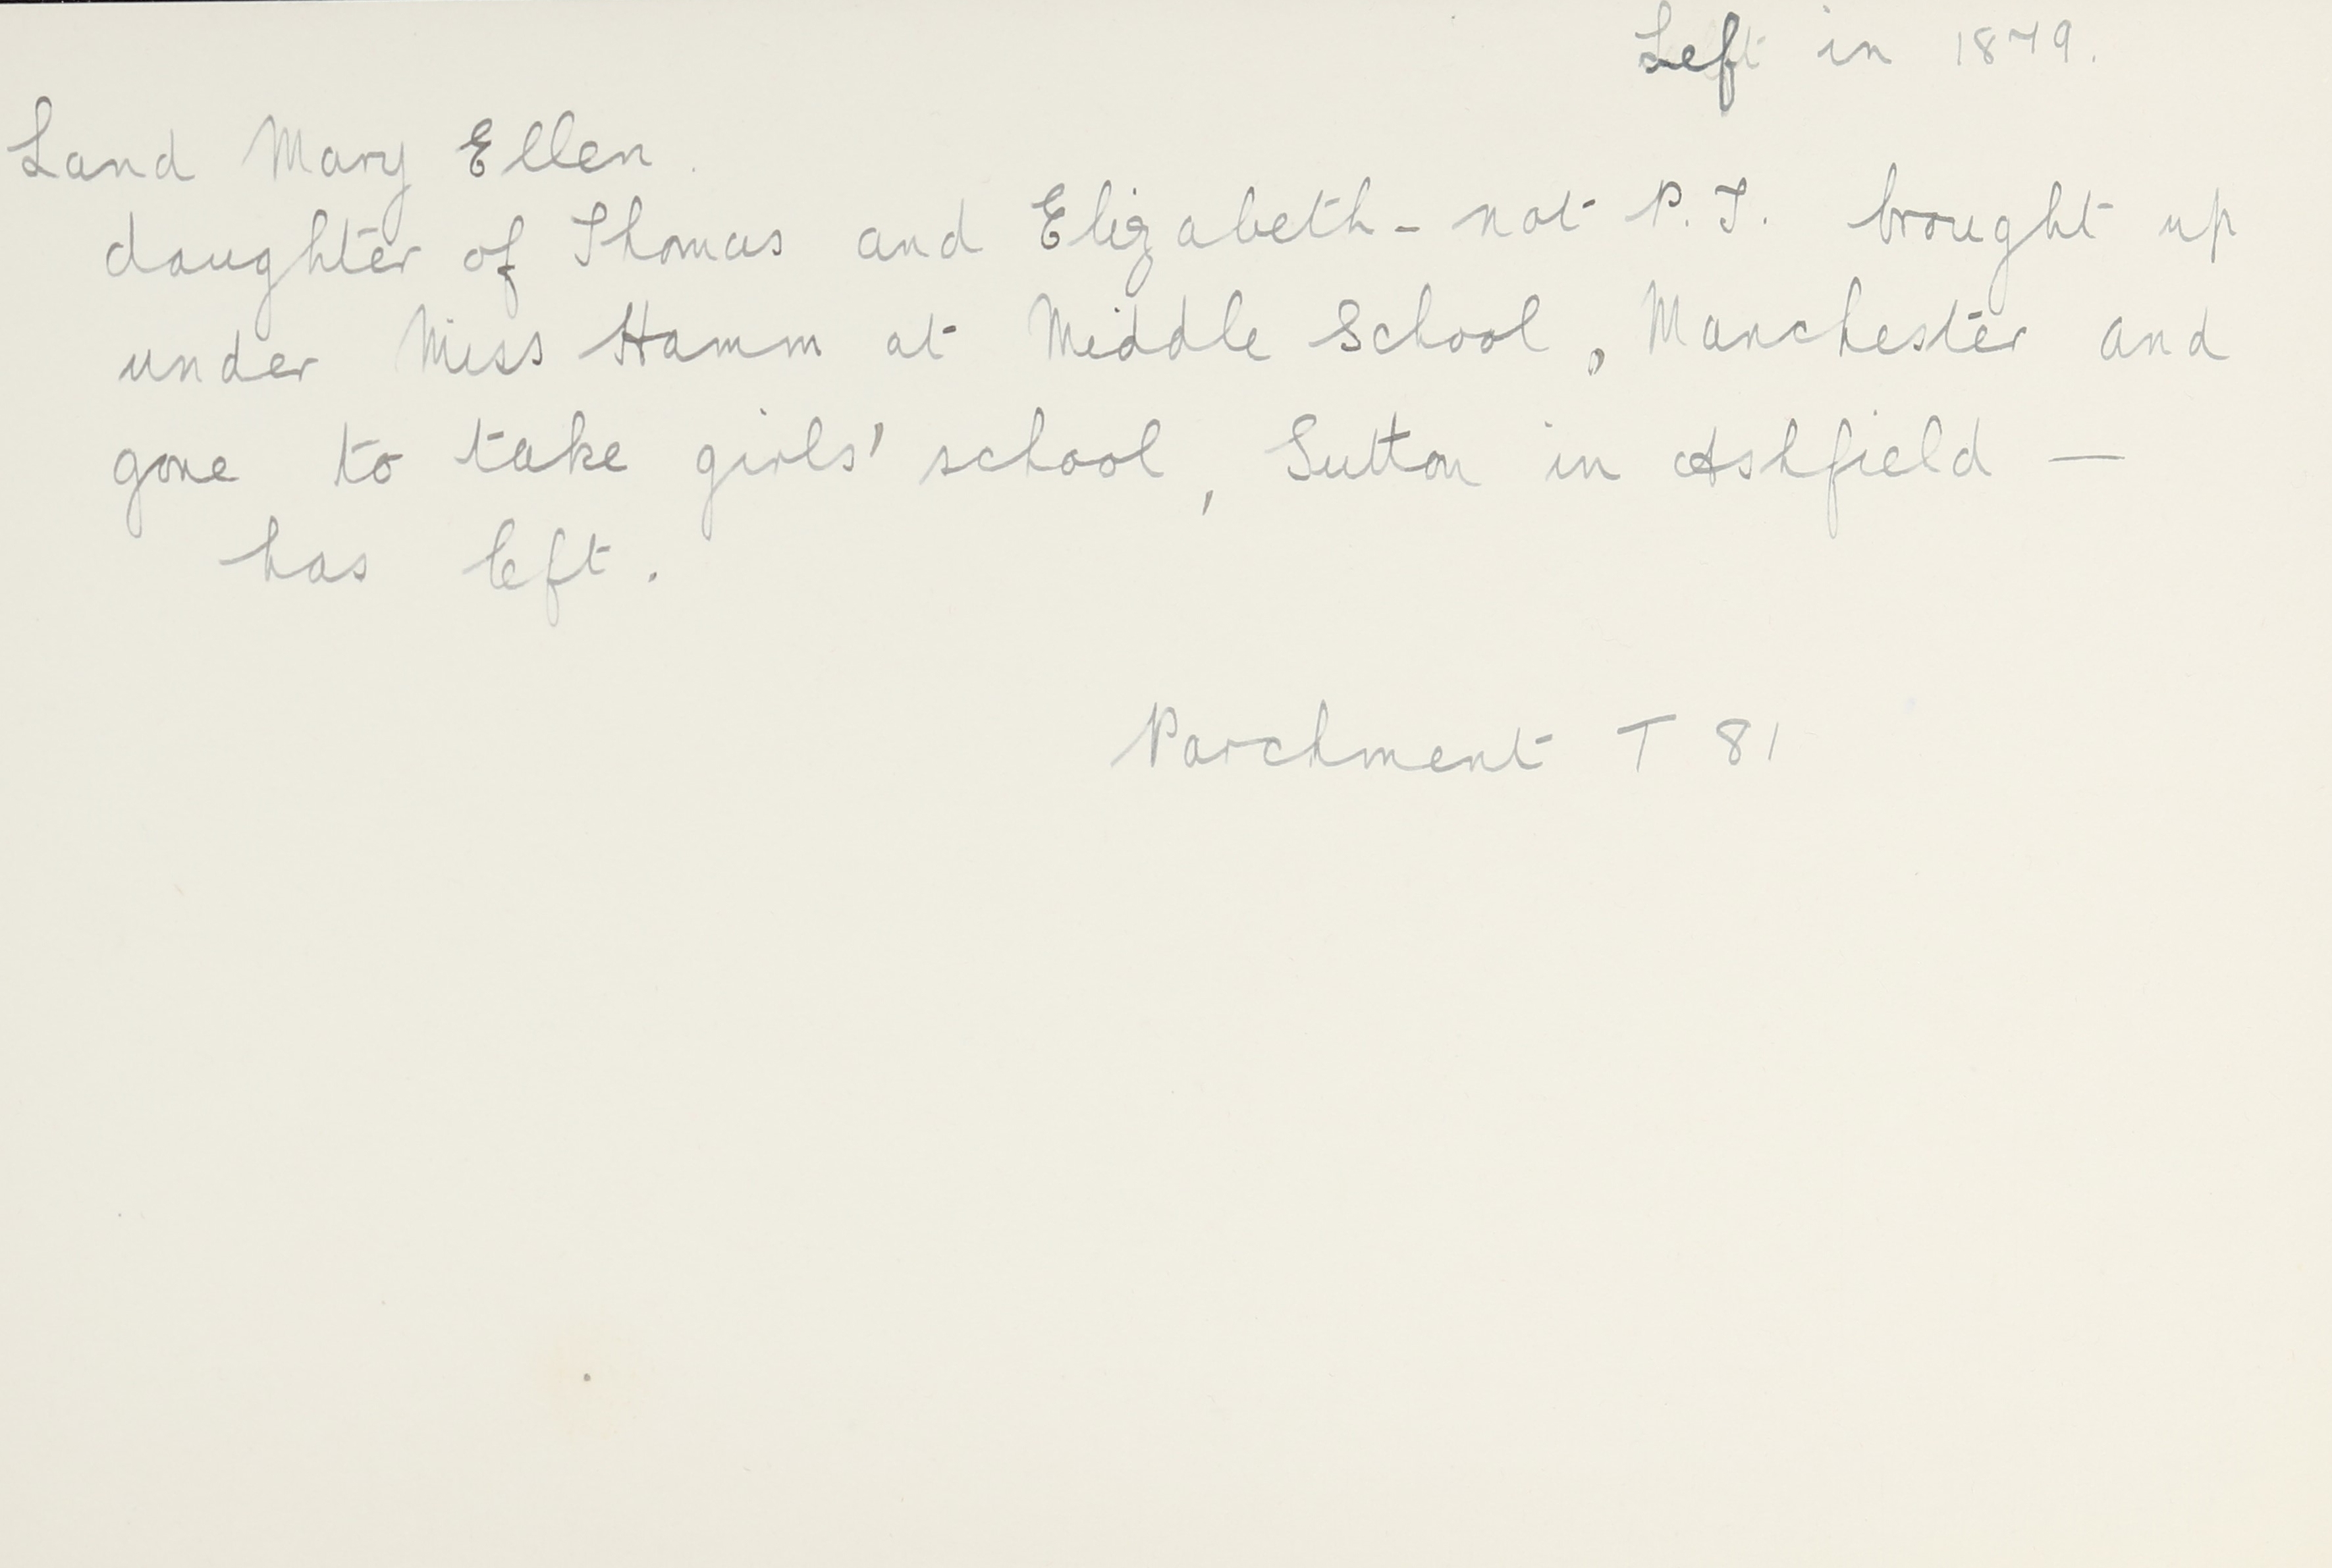 Left in 1879.
Land Mary Ellen.
daughter of Thomas and Elizabeth - not P.T. brought up
under Miss Hamm at Middle School, Manchester and
gone to take girls' school, Sutton in Ashfield —
has left.
Parchment T 81